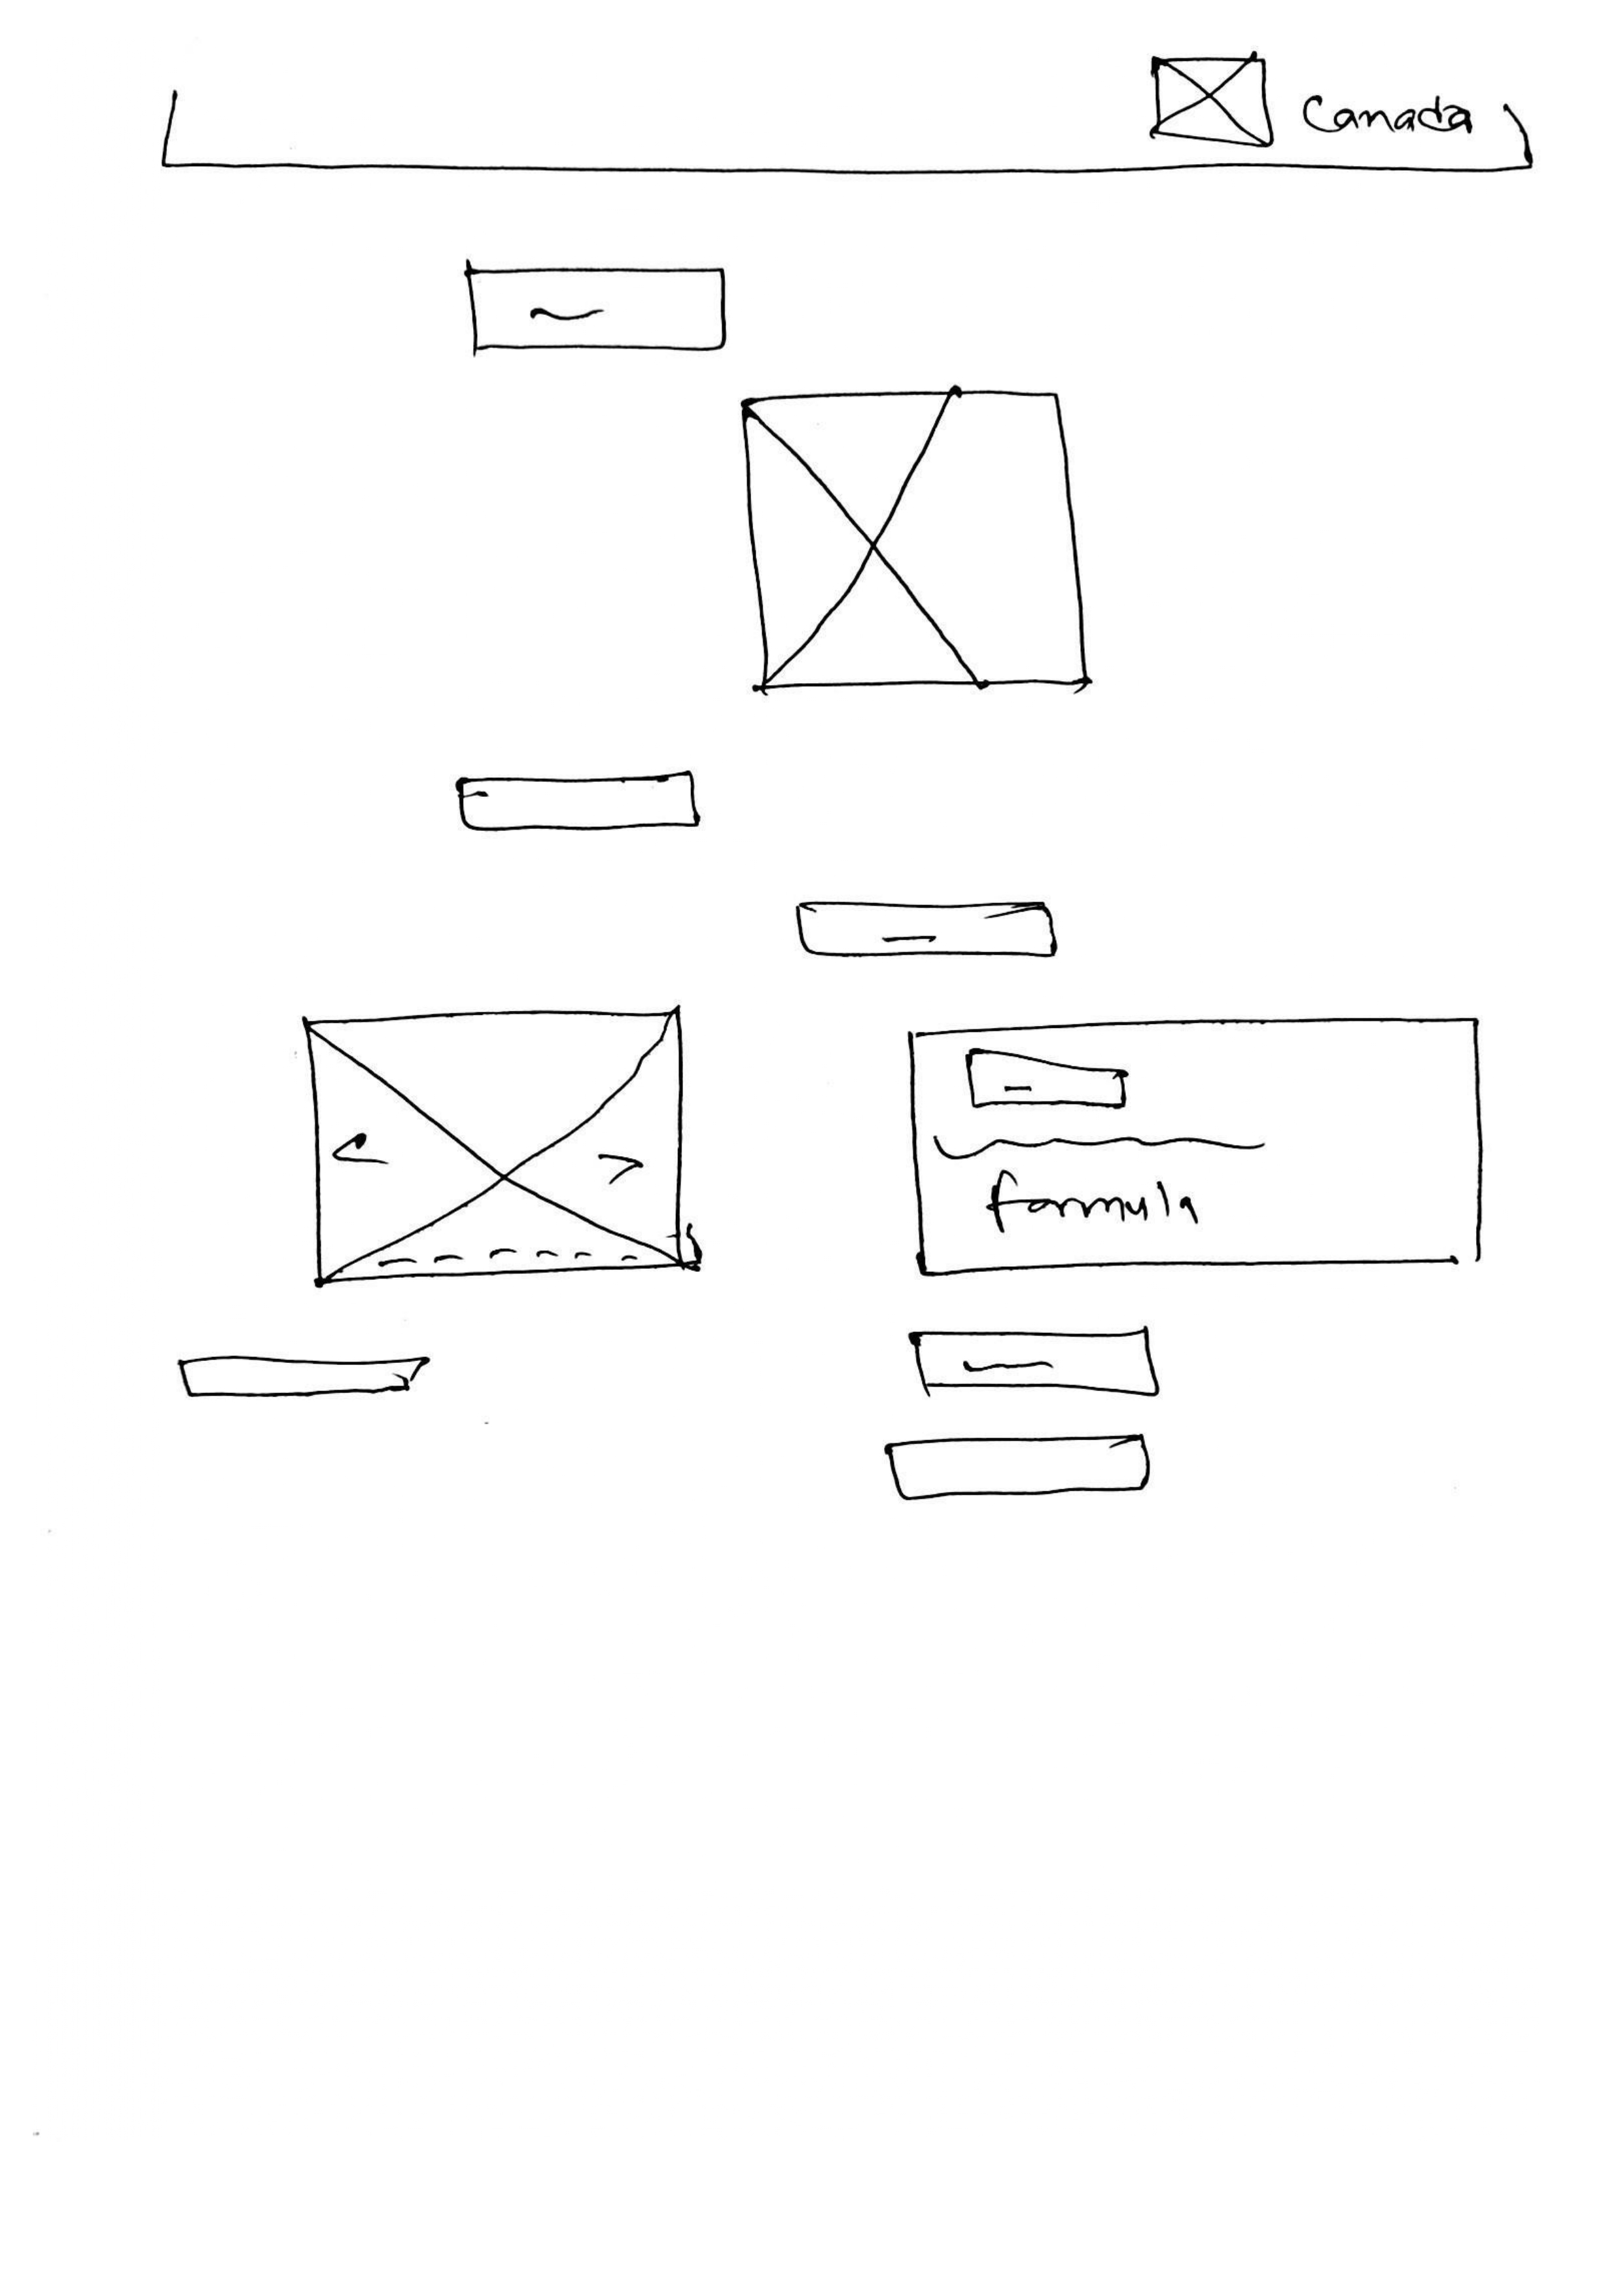 Canada
formula